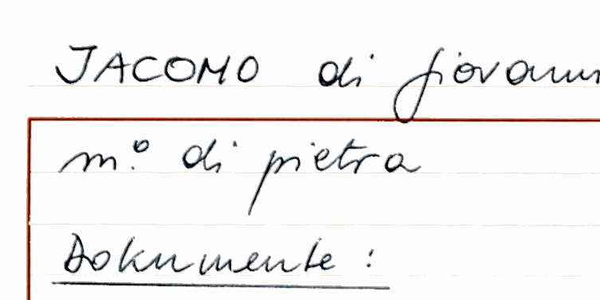 JACOMO di giovanni
m.º di pietra
Dokumente :